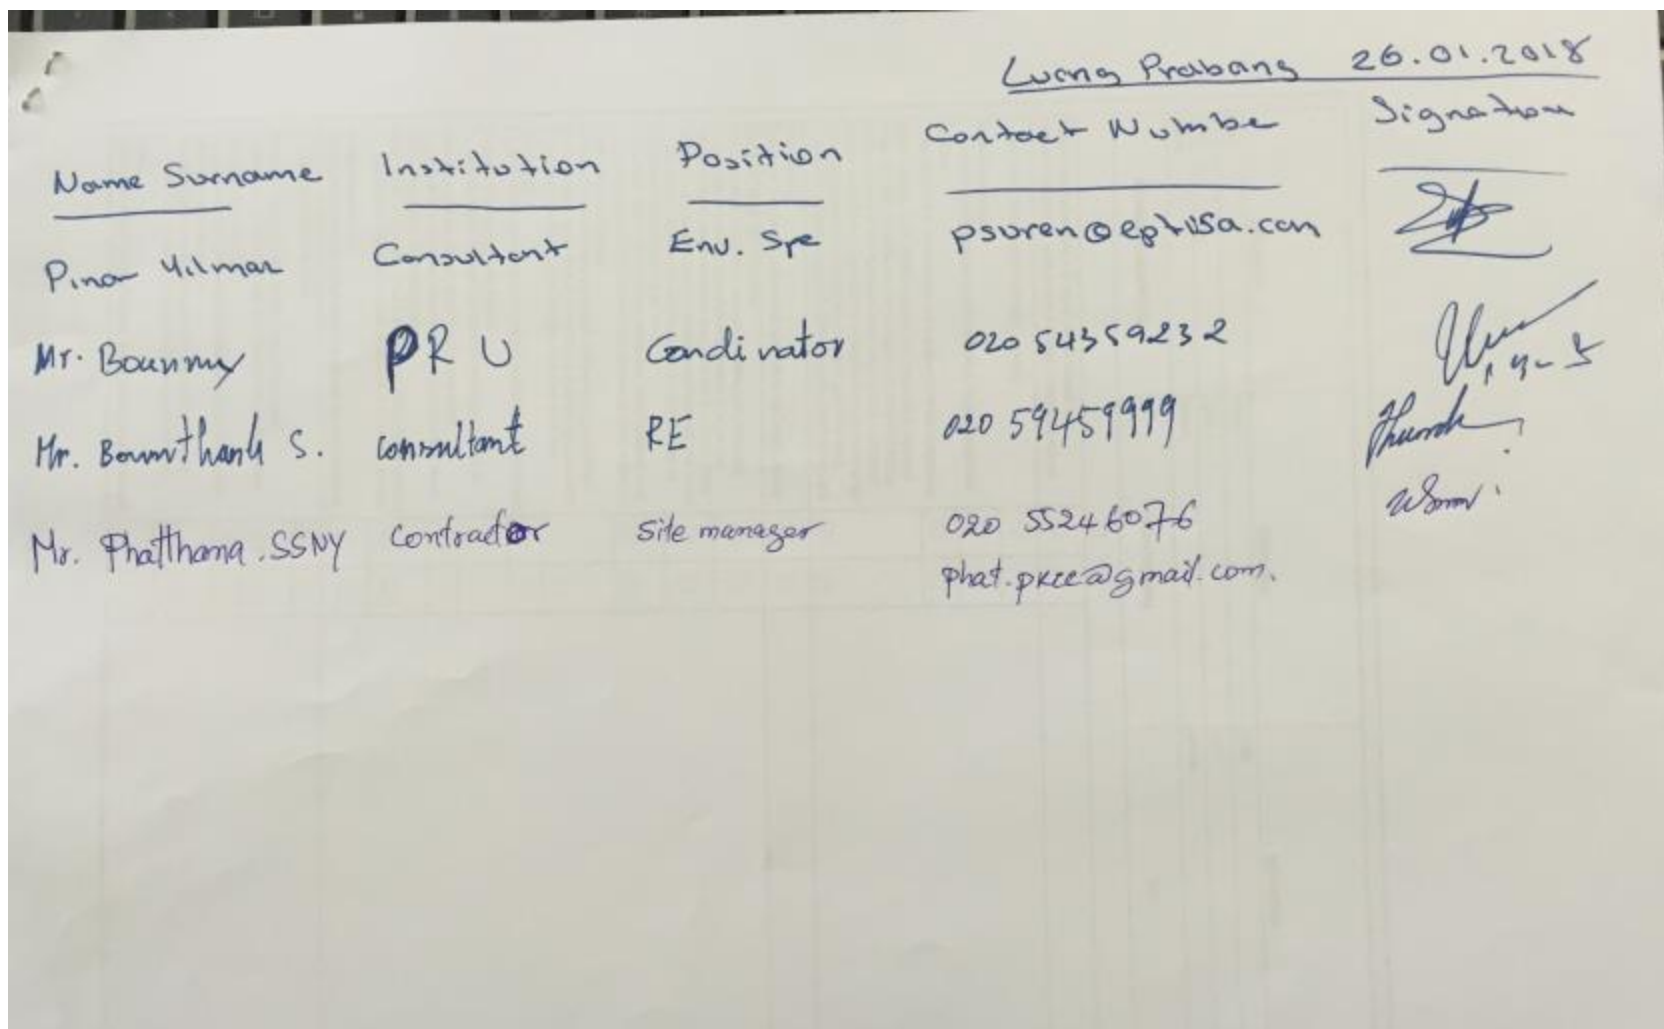 Luang Prabang 26.01.2018
Name Surname Institution Position Contact Numbe Signature
Pınar Yılmaz Consultant Env. Spe psuren@eptisa.com
Mr. Bounmy PRU Condinator 020 54359232
Mr. Bounthanh S. consultant RE 020 59459999
Mr. Phatthana. SSNY contractor Site manager 020 55246076
phat.pkcc@gmail.com.